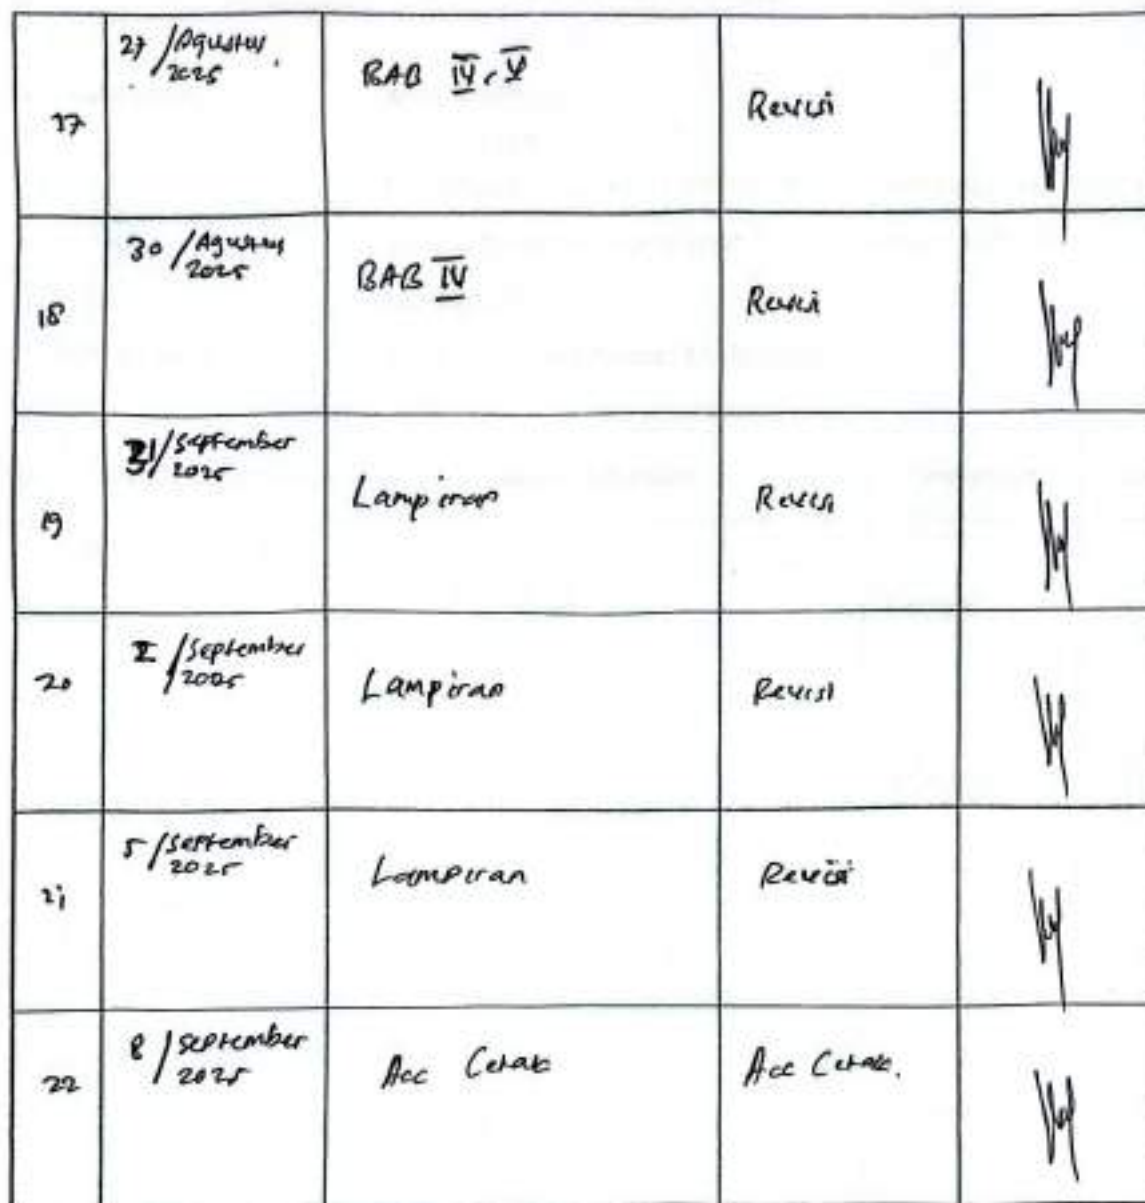 17
27 / Agustus
2025
BAB IV, V
Revisi
18
30 / Agustus
2025
BAB IV
Revisi
19
/ September
2025
Lampiran
Revisi
20
/ September
2025
Lampiran
Revisi
21
5 / September
2025
Lampiran
Revisi
22
8 / September
2025
Acc Cetak
Acc Cetak.